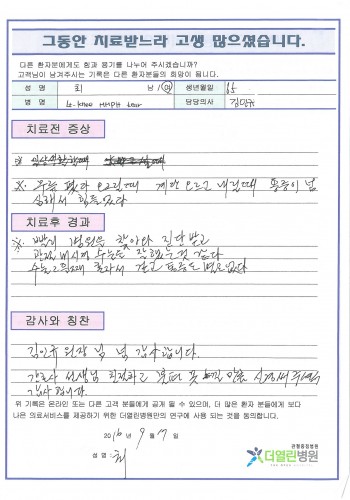 그동안 치료받느라 고생 많으셨습니다.
다른 환자분에게도 힘과 용기를 나누어 주시겠습니까?
고객님이 남겨주시는 기록은 다른 환자분들의 희망이 됩니다.
성 명 최 남 / 여 생년월일 65
병 명 Lt. knee MMPH tear 담당의사 김민규
치료전 증상
※ 무릎 폈다 오그릴때 계단 오르고 내릴때 통증이 넘
심해서 힘들었다
치료후 경과
※ 병원을 찾아와 진단받고
관절내시경 수술을 잘했는것 같다
수술 2일째 혼자서 걷고 통증도 별로없다
감사와 칭찬
김민규 원장님 넘 감사합니다.
간호사 선생님 친절하고 신경써주셔서
감사합니다.
위 기록은 온라인 또는 다른 고객 분들에게 공개 될 수 있으며, 더 많은 환자 분들에게 보다
나은 의료서비스를 제공하기 위한 더열린병원만의 연구에 사용 되는 것을 동의합니다.
2016 년 9 월 17 일
성 명 : 최
관절중점병원
더열린병원